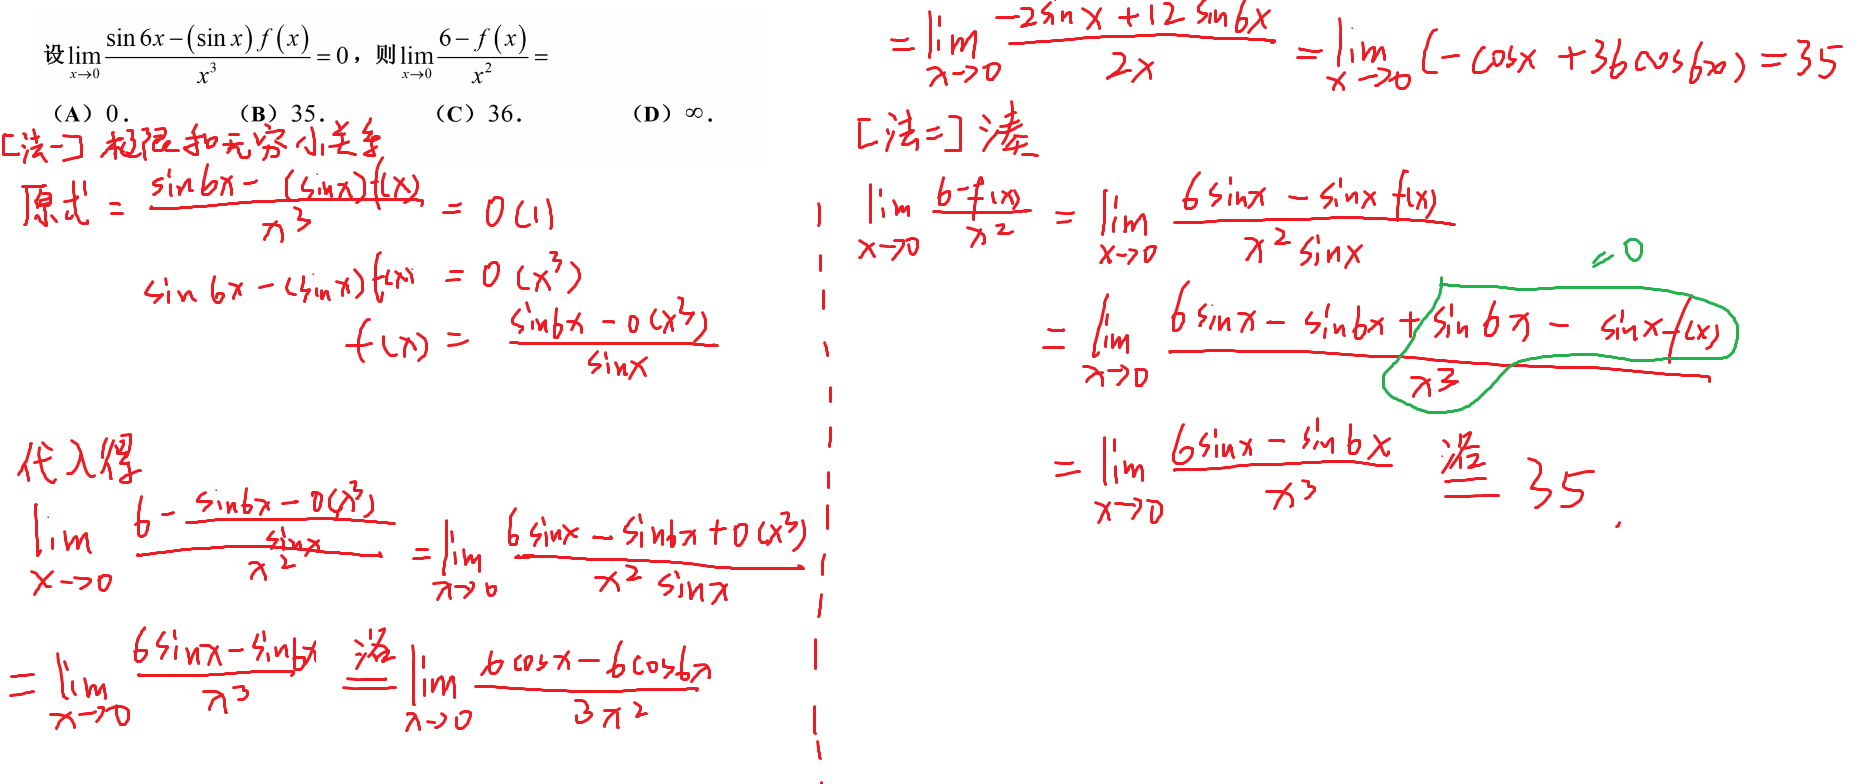 设 lim_{x→0} (sin 6x − (sin x) f(x)) / x³ = 0，则 lim_{x→0} (6 − f(x)) / x² =
（A）0．　（B）35．　（C）36．　（D）∞．
[法一] 极限和无穷小关系
原式 = (sin6x − (sinx)f(x)) / x³ = 0(1)
sin6x − (sinx)f(x) = 0(x³)
f(x) = (sin6x − 0(x³)) / sinx
代入得
lim_{x→0} (6 − (sin6x − 0(x³)) / sinx) / x² = lim_{x→0} (6sinx − sin6x + 0(x³)) / (x² sinx)
= lim_{x→0} (6sinx − sin6x) / x³ 洛= lim_{x→0} (6cosx − 6cos6x) / 3x²
= lim_{x→0} (−2sinx + 12sin6x) / 2x = lim_{x→0} (−cosx + 36cos6x) = 35
[法二] 凑
lim_{x→0} (6−f(x)) / x² = lim_{x→0} (6sinx − sinx f(x)) / (x² sinx)
= 0
= lim_{x→0} (6sinx − sin6x + sin6x − sinx f(x)) / x³
= lim_{x→0} (6sinx − sin6x) / x³ 洛= 35.